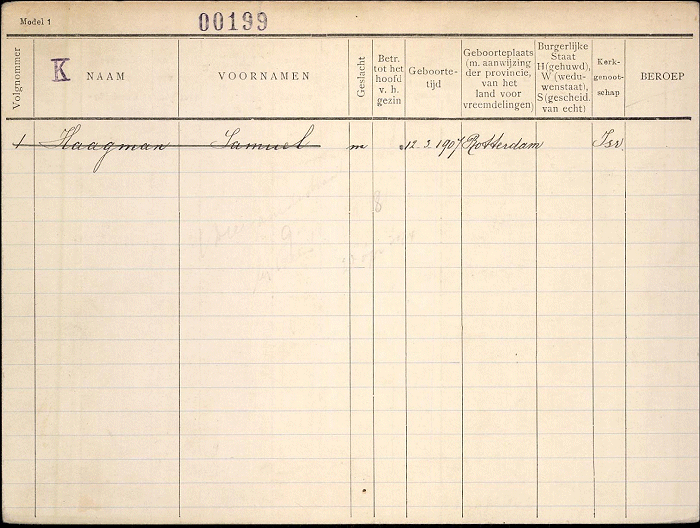 Model 1
00199
Volgnommer
K NAAM
VOORNAMEN
Geslacht
Betr.
tot het
hoofd
v. h.
gezin
Geboorte-
tijd
Geboorteplaats
(m. aanwijzing
der provincie,
van het
land voor
vreemdelingen)
Burgerlijke
Staat
H(gehuwd),
W(wedu-
wenstaat),
S(gescheid.
van echt)
Kerk-
genoot-
schap
BEROEP
1 Haagman Samuel m 12.3.1907 Rotterdam Isr.
8
9